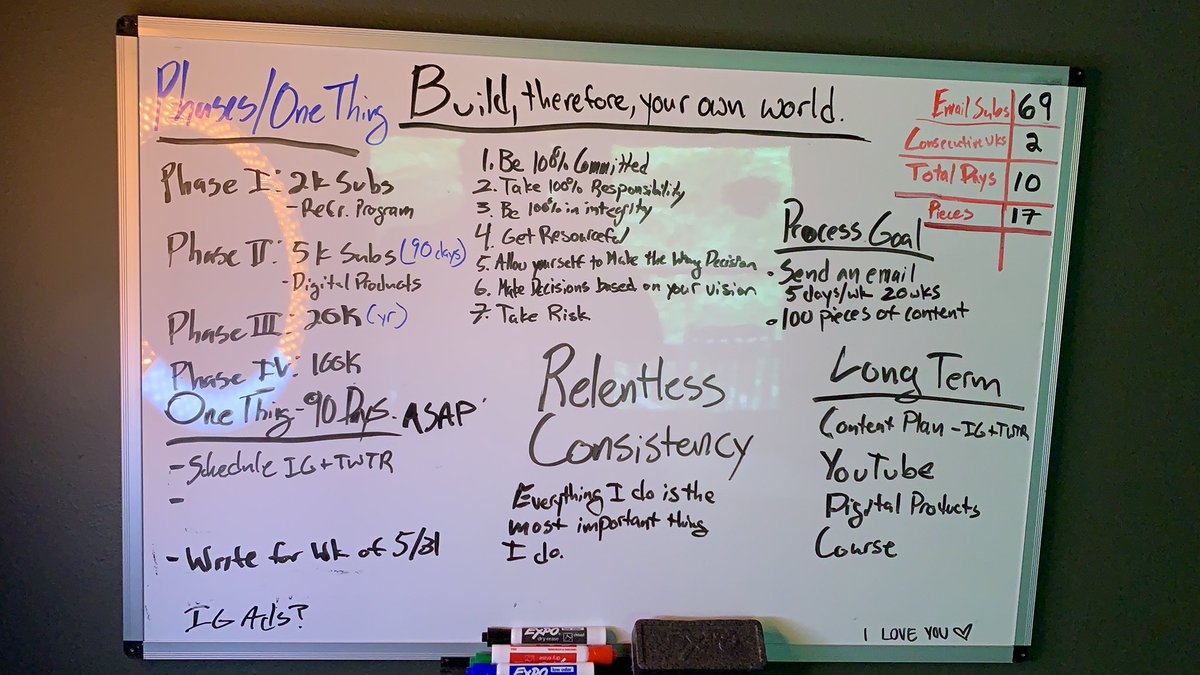 Phases/One Thing
Build, therefore, your own world.
Email Subs 69
Consecutive wks 2
Total Days 10
Pieces 17
Phase I: 2k Subs
- Refr. Program
Phase II: 5k Subs (90 days)
- Digital Products
Phase III: 20K (yr)
Phase IV: 100K
One Thing - 90 Days - ASAP
- Schedule IG + TWTR
-
- Write for Wk of 5/31
IG Ads?
1. Be 100% Committed
2. Take 100% Responsibility
3. Be 100% in integrity
4. Get Resourceful
5. Allow yourself to Make the Wrong Decision
6. Make Decisions based on your vision
7. Take Risk
Relentless
Consistency
Everything I do is the
most important thing
I do.
Process Goal
• Send an email
5 days/wk 20wks
• 100 pieces of content
Long Term
Content Plan - IG + TWTR
YouTube
Digital Products
Course
I LOVE YOU ♡
EXPO
dry erase
EXPO